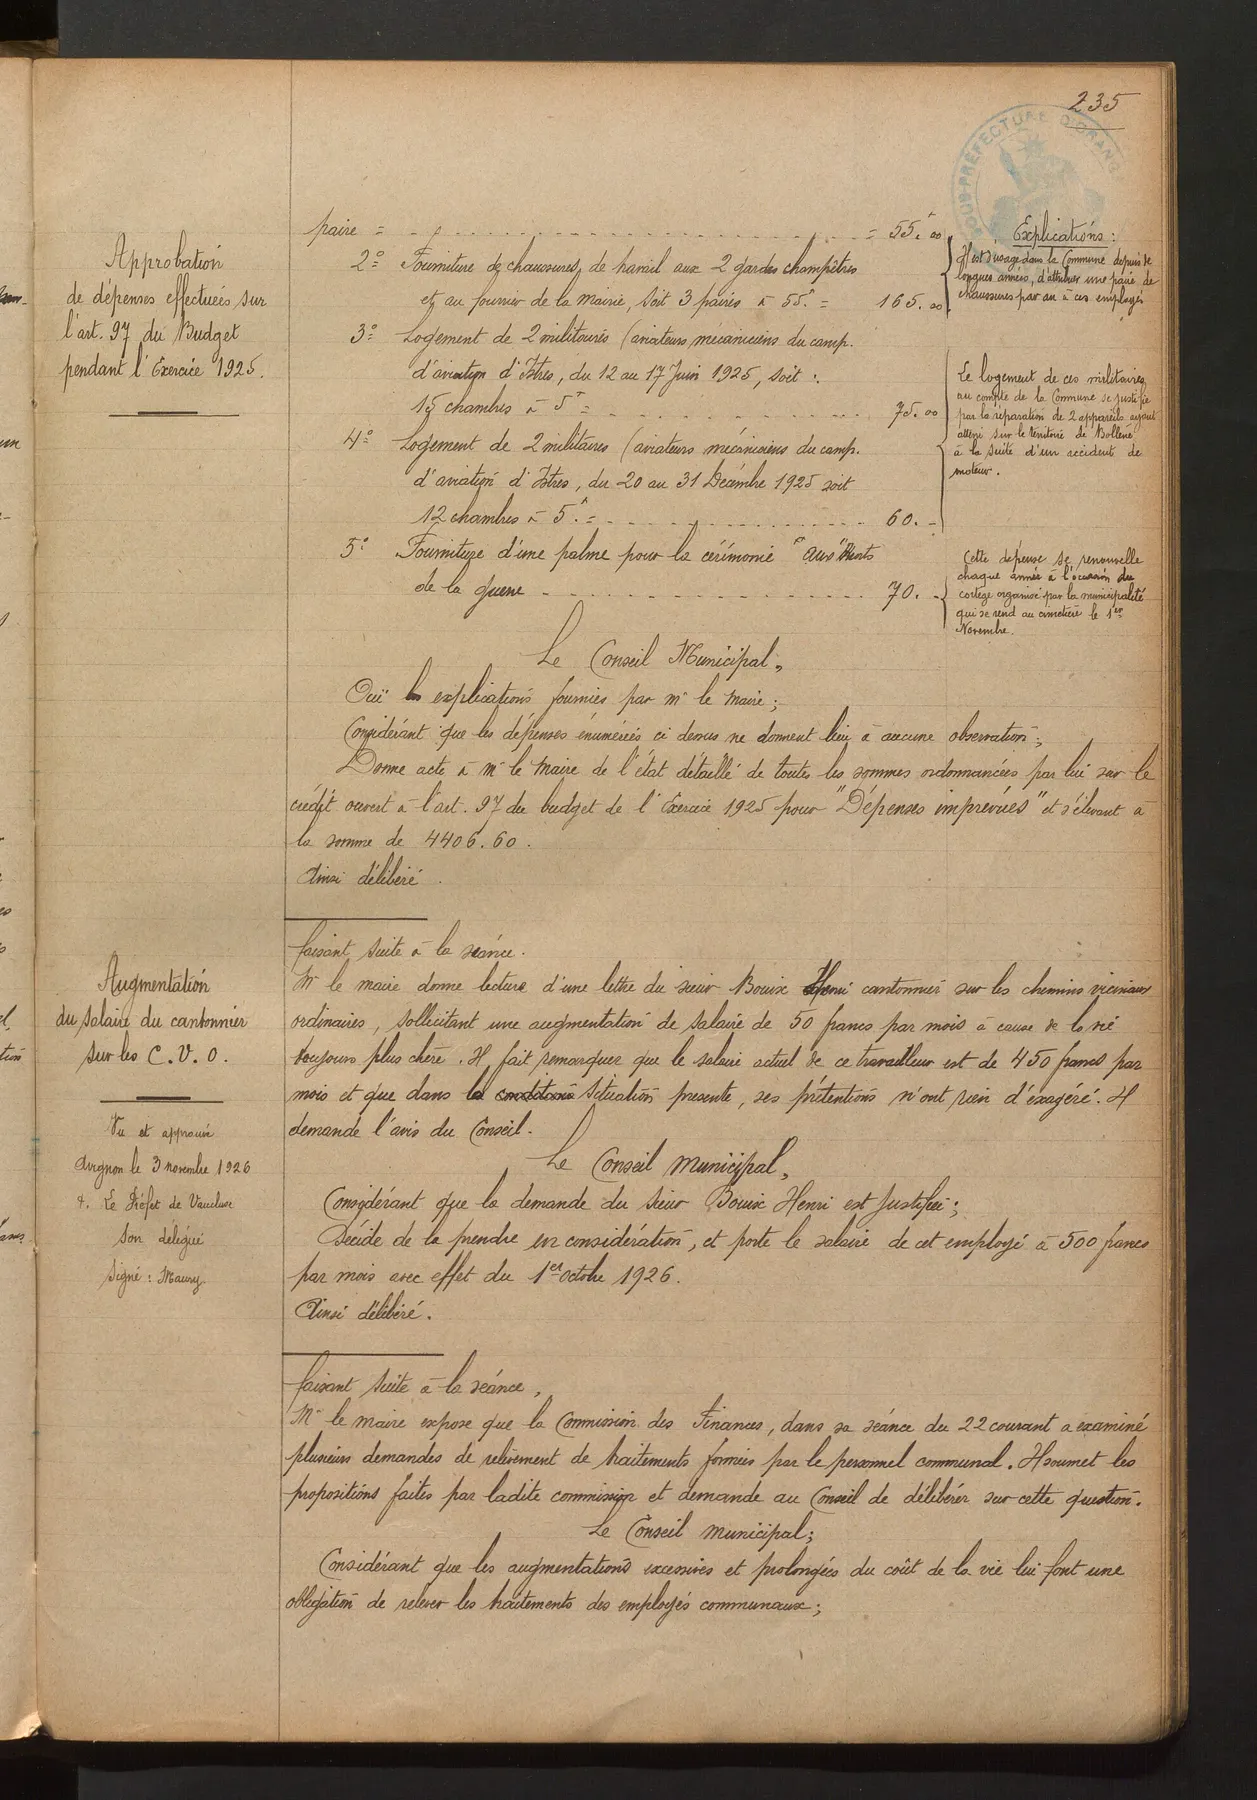 235
SOUS-PRÉFECTURE D'ORANGE
Approbation
de dépenses effectuées sur
l'art. 97 du Budget
pendant l'Exercice 1925.
paire = 55.00
2° Fourniture de chaussures, de travail aux 2 gardes champêtres
et au fourrier de la mairie, soit 3 paires à 55f = 165.00
Explications :
Il est d'usage dans la Commune depuis de
longues années, d'attribuer une paire de
chaussures par an à ces employés
3° Logement de 2 militaires (aviateurs mécaniciens du camp.
d'aviation d'Istres, du 12 au 17 Juin 1925, soit :
15 chambres à 5f = 75.00
4° Logement de 2 militaires (aviateurs mécaniciens du camp.
d'aviation d'Istres, du 20 au 31 Décembre 1925 soit
12 chambres à 5f = 60. -
Le logement de ces militaires
au compte de la Commune se justifie
par la réparation de 2 appareils ayant
atterri sur le territoire de Bollène
à la suite d'un accident de
moteur.
5° Fourniture d'une palme pour la cérémonie "aux Morts
de la guerre 70. -
Cette dépense se renouvelle
chaque année à l'occasion du
cortège organisé par la municipalité
qui se rend au cimetière le 1er
Novembre.
Le Conseil Municipal,
Ouï les explications fournies par Mr le Maire ;
Considérant que les dépenses énumérées ci dessus ne donnent lieu à aucune observation ;
Donne acte à Mr le Maire de l'état détaillé de toutes les sommes ordonnancées par lui sur le
crédit ouvert à l'art. 97 du budget de l'Exercice 1925 pour "Dépenses imprévues" et s'élevant à
la somme de 4406.60.
Ainsi délibéré.
Augmentation
du salaire du cantonnier
sur les C.V.O.
Vu et approuvé
Avignon le 3 novembre 1926
P. Le Préfet de Vaucluse
Son délégué
Signé : Maury.
Faisant suite à la séance.
Mr le maire donne lecture d'une lettre du sieur Bouix Henri cantonnier sur les chemins vicinaux
ordinaires, sollicitant une augmentation de salaire de 50 francs par mois à cause de la vie
toujours plus chère. Il fait remarquer que le salaire actuel de ce travailleur est de 450 francs par
mois et que dans la conditions situation présente, ses prétentions n'ont rien d'exagéré. Il
demande l'avis du Conseil.
Le Conseil municipal,
Considérant que la demande du sieur Bouix Henri est justifiée ;
Décide de la prendre en considération, et porte le salaire de cet employé à 500 francs
par mois avec effet du 1er octobre 1926.
Ainsi délibéré.
Faisant suite à la séance,
Mr le maire expose que la Commission des Finances, dans sa séance du 22 courant a examiné
plusieurs demandes de relèvement de traitements formées par le personnel communal. Il soumet les
propositions faites par ladite commission et demande au Conseil de délibérer sur cette question.
Le Conseil municipal ;
Considérant que les augmentations excessives et prolongées du coût de la vie lui font une
obligation de relever les traitements des employés communaux ;